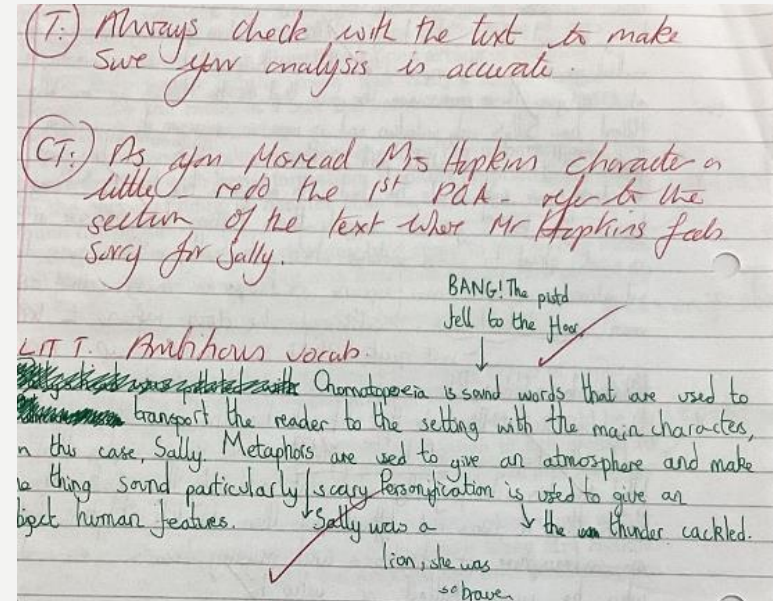 T: Always check with the text to make
sure your analysis is accurate.
CT: As you misread Mrs Hopkins character a
little - redo the 1st PQA - refer to the
section of the text where Mr Hopkins feels
sorry for Sally.
BANG! The pistol
fell to the floor.
LIT T. Ambitious vocab.
Onomatopoeia is sound words that are used to
transport the reader to the setting with the main character,
n this case, Sally. Metaphors are used to give an atmosphere and make
e thing sound particularly scary Personification is used to give an
bject human features. Sally was a the thunder cackled.
lion, she was
so brave